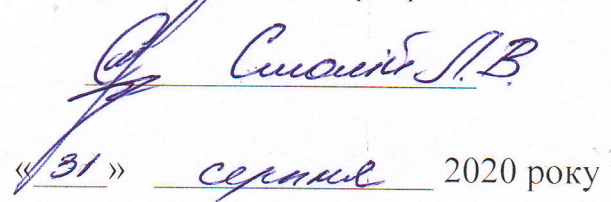 Смолій Л.В.
«31» серпня 2020 року